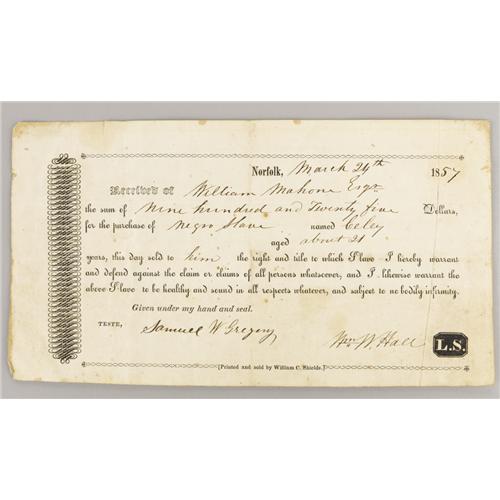 Norfolk, March 24th 1857
Received of William Mahone Esqr
the sum of Nine hundred and Twenty five Dollars,
for the purchase of Negro Slave named Celey
aged about 21
years, this day sold to him the right and title to which Slave I hereby warrant
and defend against the claim or claims of all persons whatsoever, and I likewise warrant the
above Slave to be healthy and sound in all respects whatever, and subject to no bodily infirmity.
Given under my hand and seal.
TESTE, Samuel W Gregory Wm W. Hall L.S.
[Printed and sold by William C. Shields.]